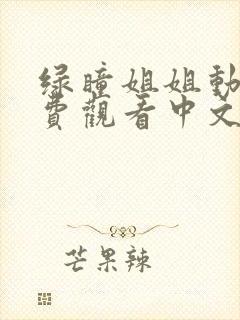 绿瞳姐姐動
費觀看中文
芒果辣